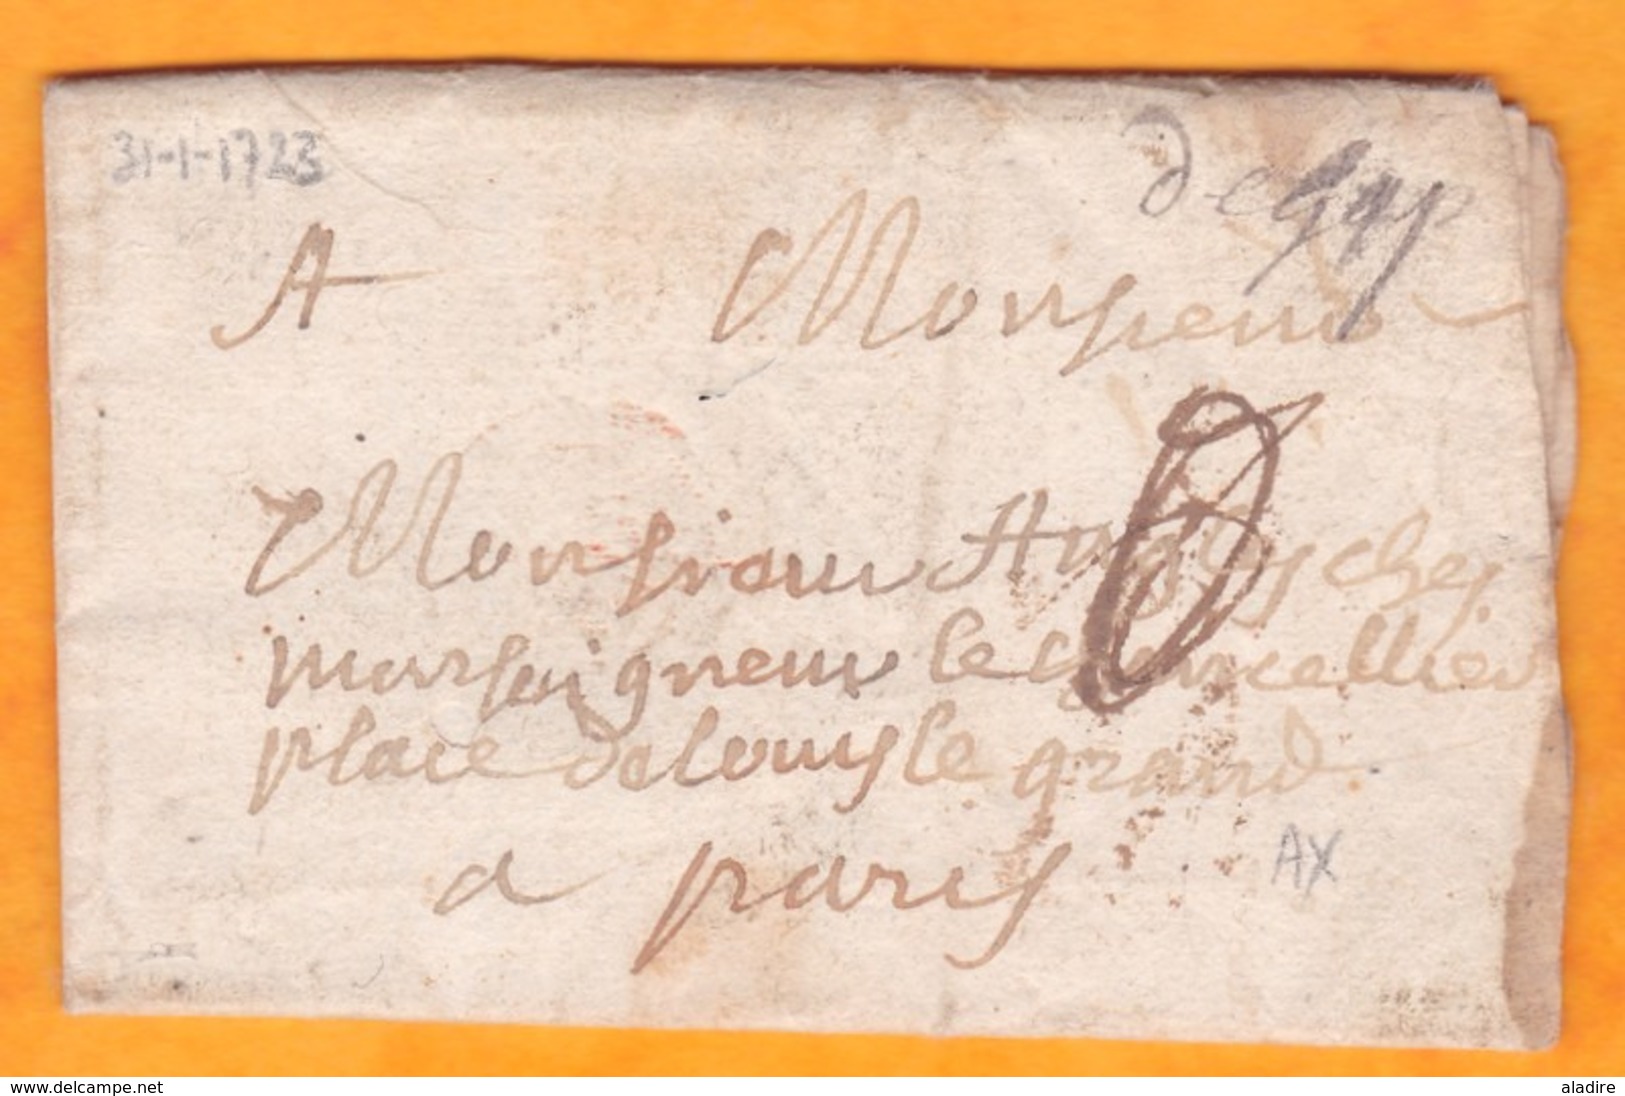 31-1-1723
deGap
A Monsieur
Monsieur chez
monseigneur le chancellier
place de louys le grand
a parys
AX
www.delcampe.net
aladire